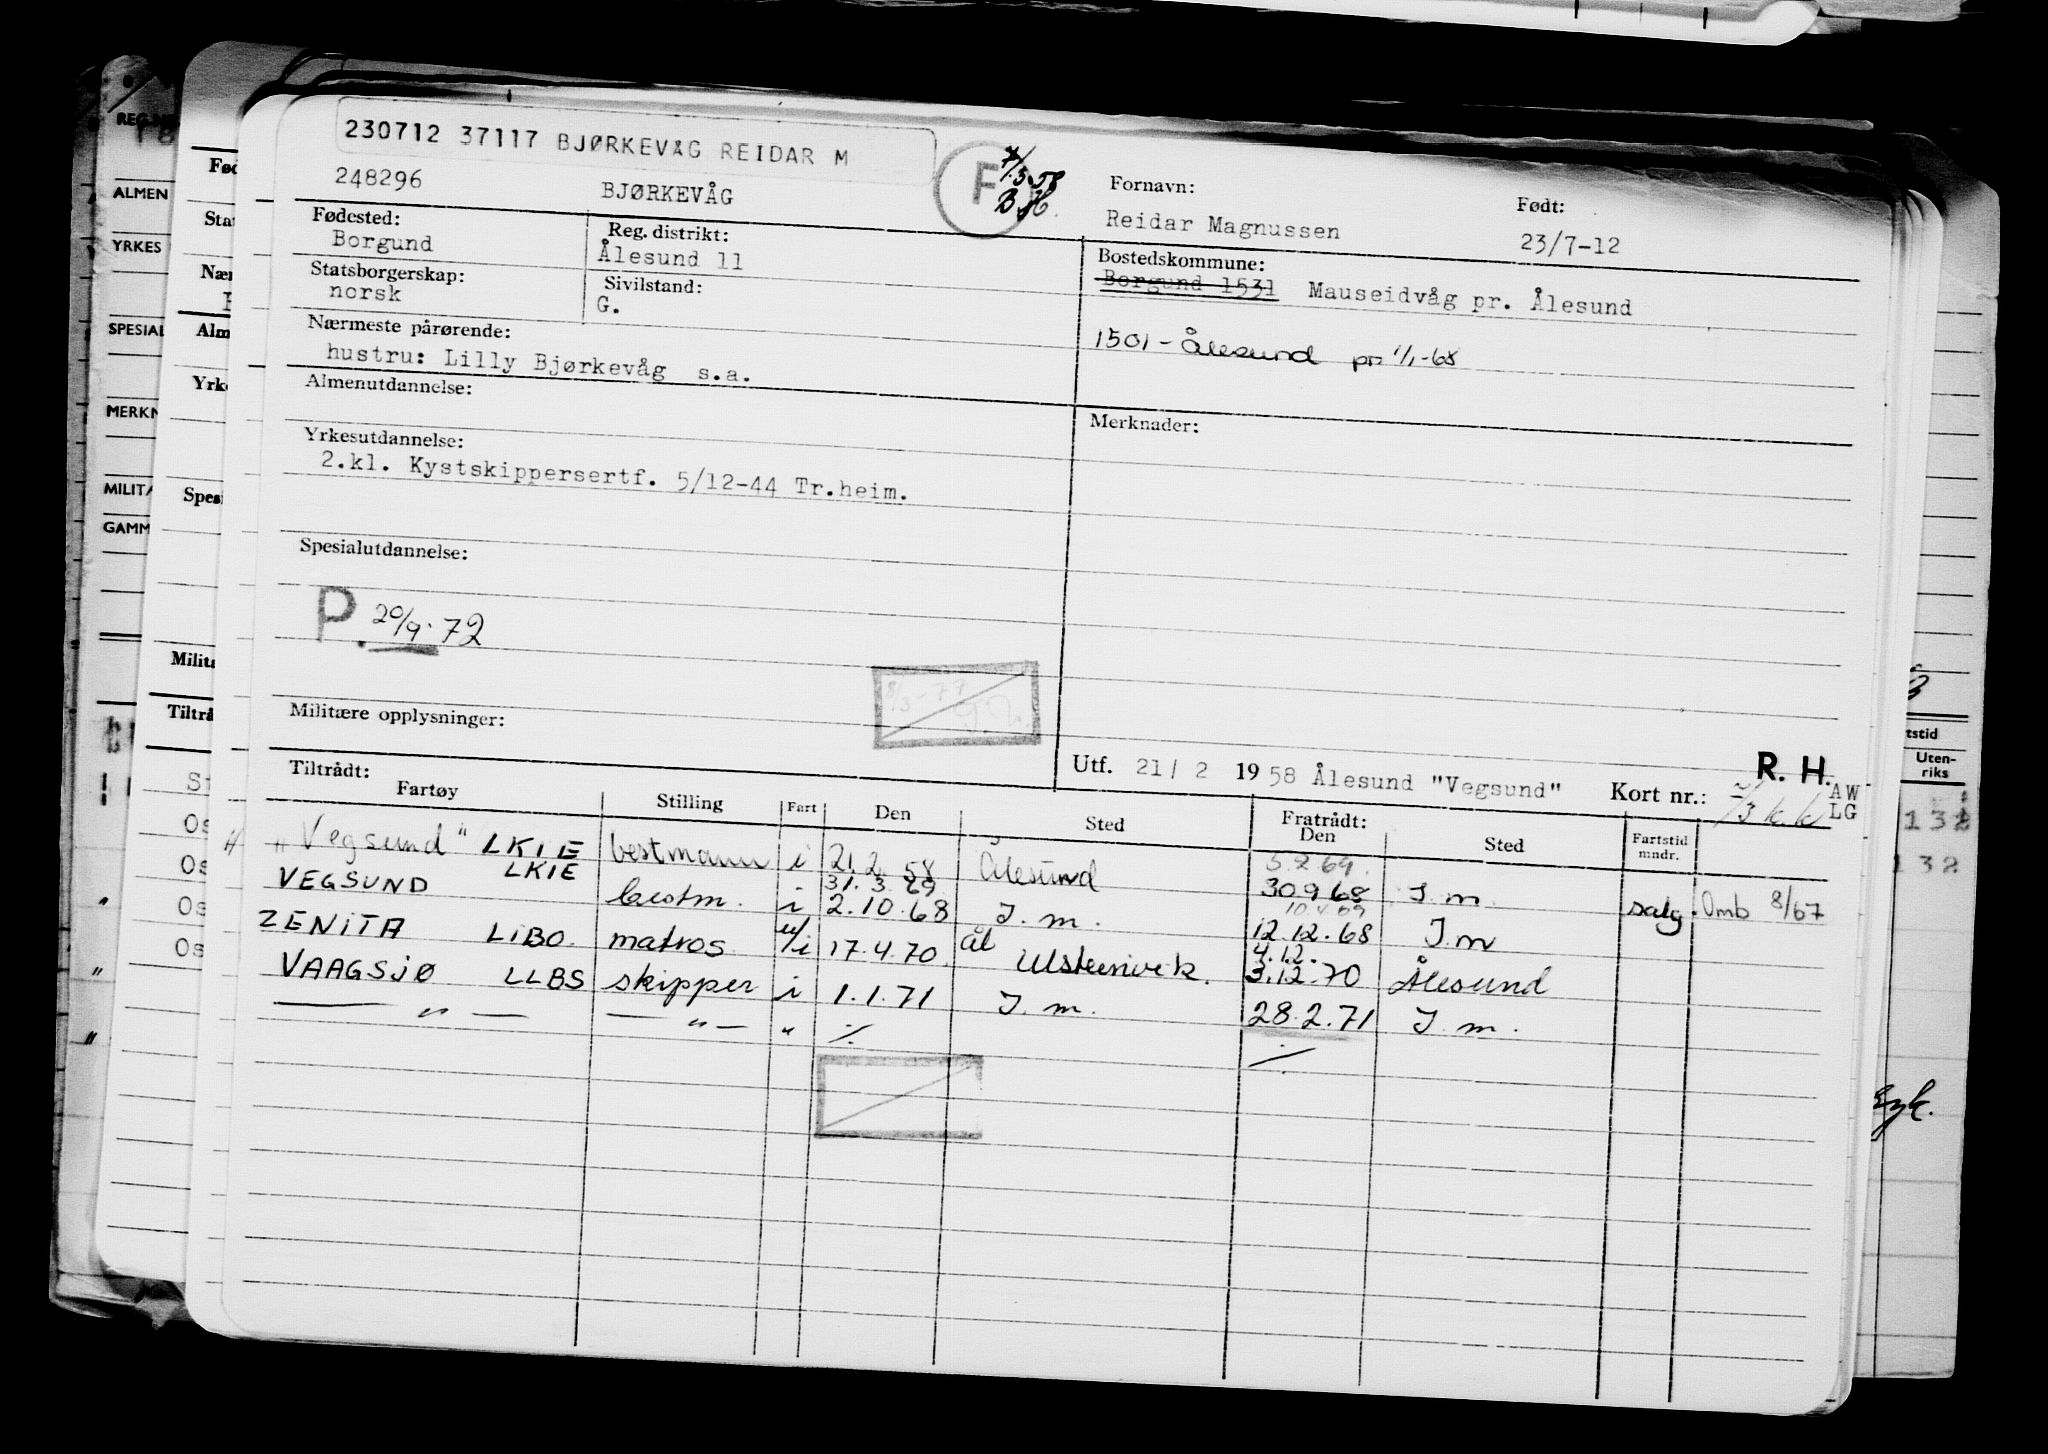 230712 37117 BJØRKEVÅG REIDAR M
248296 BJØRKEVÅG
F 7/3.58
Fornavn: Født:
Reidar Magnussen 23/7-12
Fødested: Reg. distrikt: Bostedskommune:
Borgund Ålesund 11 Borgund 1531 Mauseidvåg pr. Ålesund
Statsborgerskap: Sivilstand:
norsk G.
1501 - Ålesund pr. 1/1-68
Nærmeste pårørende:
hustru: Lilly Bjørkevåg s.a.
Almenutdannelse: Merknader:
Yrkesutdannelse:
2.kl. Kystskippersertf. 5/12-44 Tr.heim.
Spesialutdannelse:
P. 20/9.72
8/3-77
Militære opplysninger:
R. H.
Utf. 21/ 2 1958 Ålesund "Vegsund" Kort nr.: AW
LG
Tiltrådt: Fratrådt:
Fartøy Stilling Fart Den Sted Den Sted Fartstid mndr.
"Vegsund" LKIE bestmann i 21.2.58 Ålesund 5.2.69
VEGSUND LKIE bestm. i 31.3.69 30.9.68 I.m. salg. Omb 8/67
2.10.68 I.m. 10.4.69
12.12.68 I.m
ZENITA LIBO. matros u/i 17.4.70 ål 4.12.
VAAGSJØ LLBS skipper i 1.1.71 Ulsteinvik. 3.12.70 Ålesund
— " — — " — " ./. I.m. 28.2.71 I.m.
./.
REG.
ALMEN
YRKES
SPESIAL
MERKN
MILITÆ
GAMM
Fød
Stat
Nær
Alm
Yrke
Spesi
Milita
Tiltrå
Os
Os
Os
Os
tstid
Uten-
riks
132
132